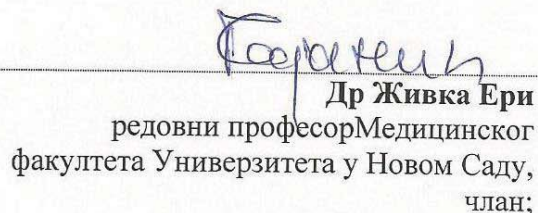 Др Живка Ери
редовни професорМедицинског
факултета Универзитета у Новом Саду,
члан;